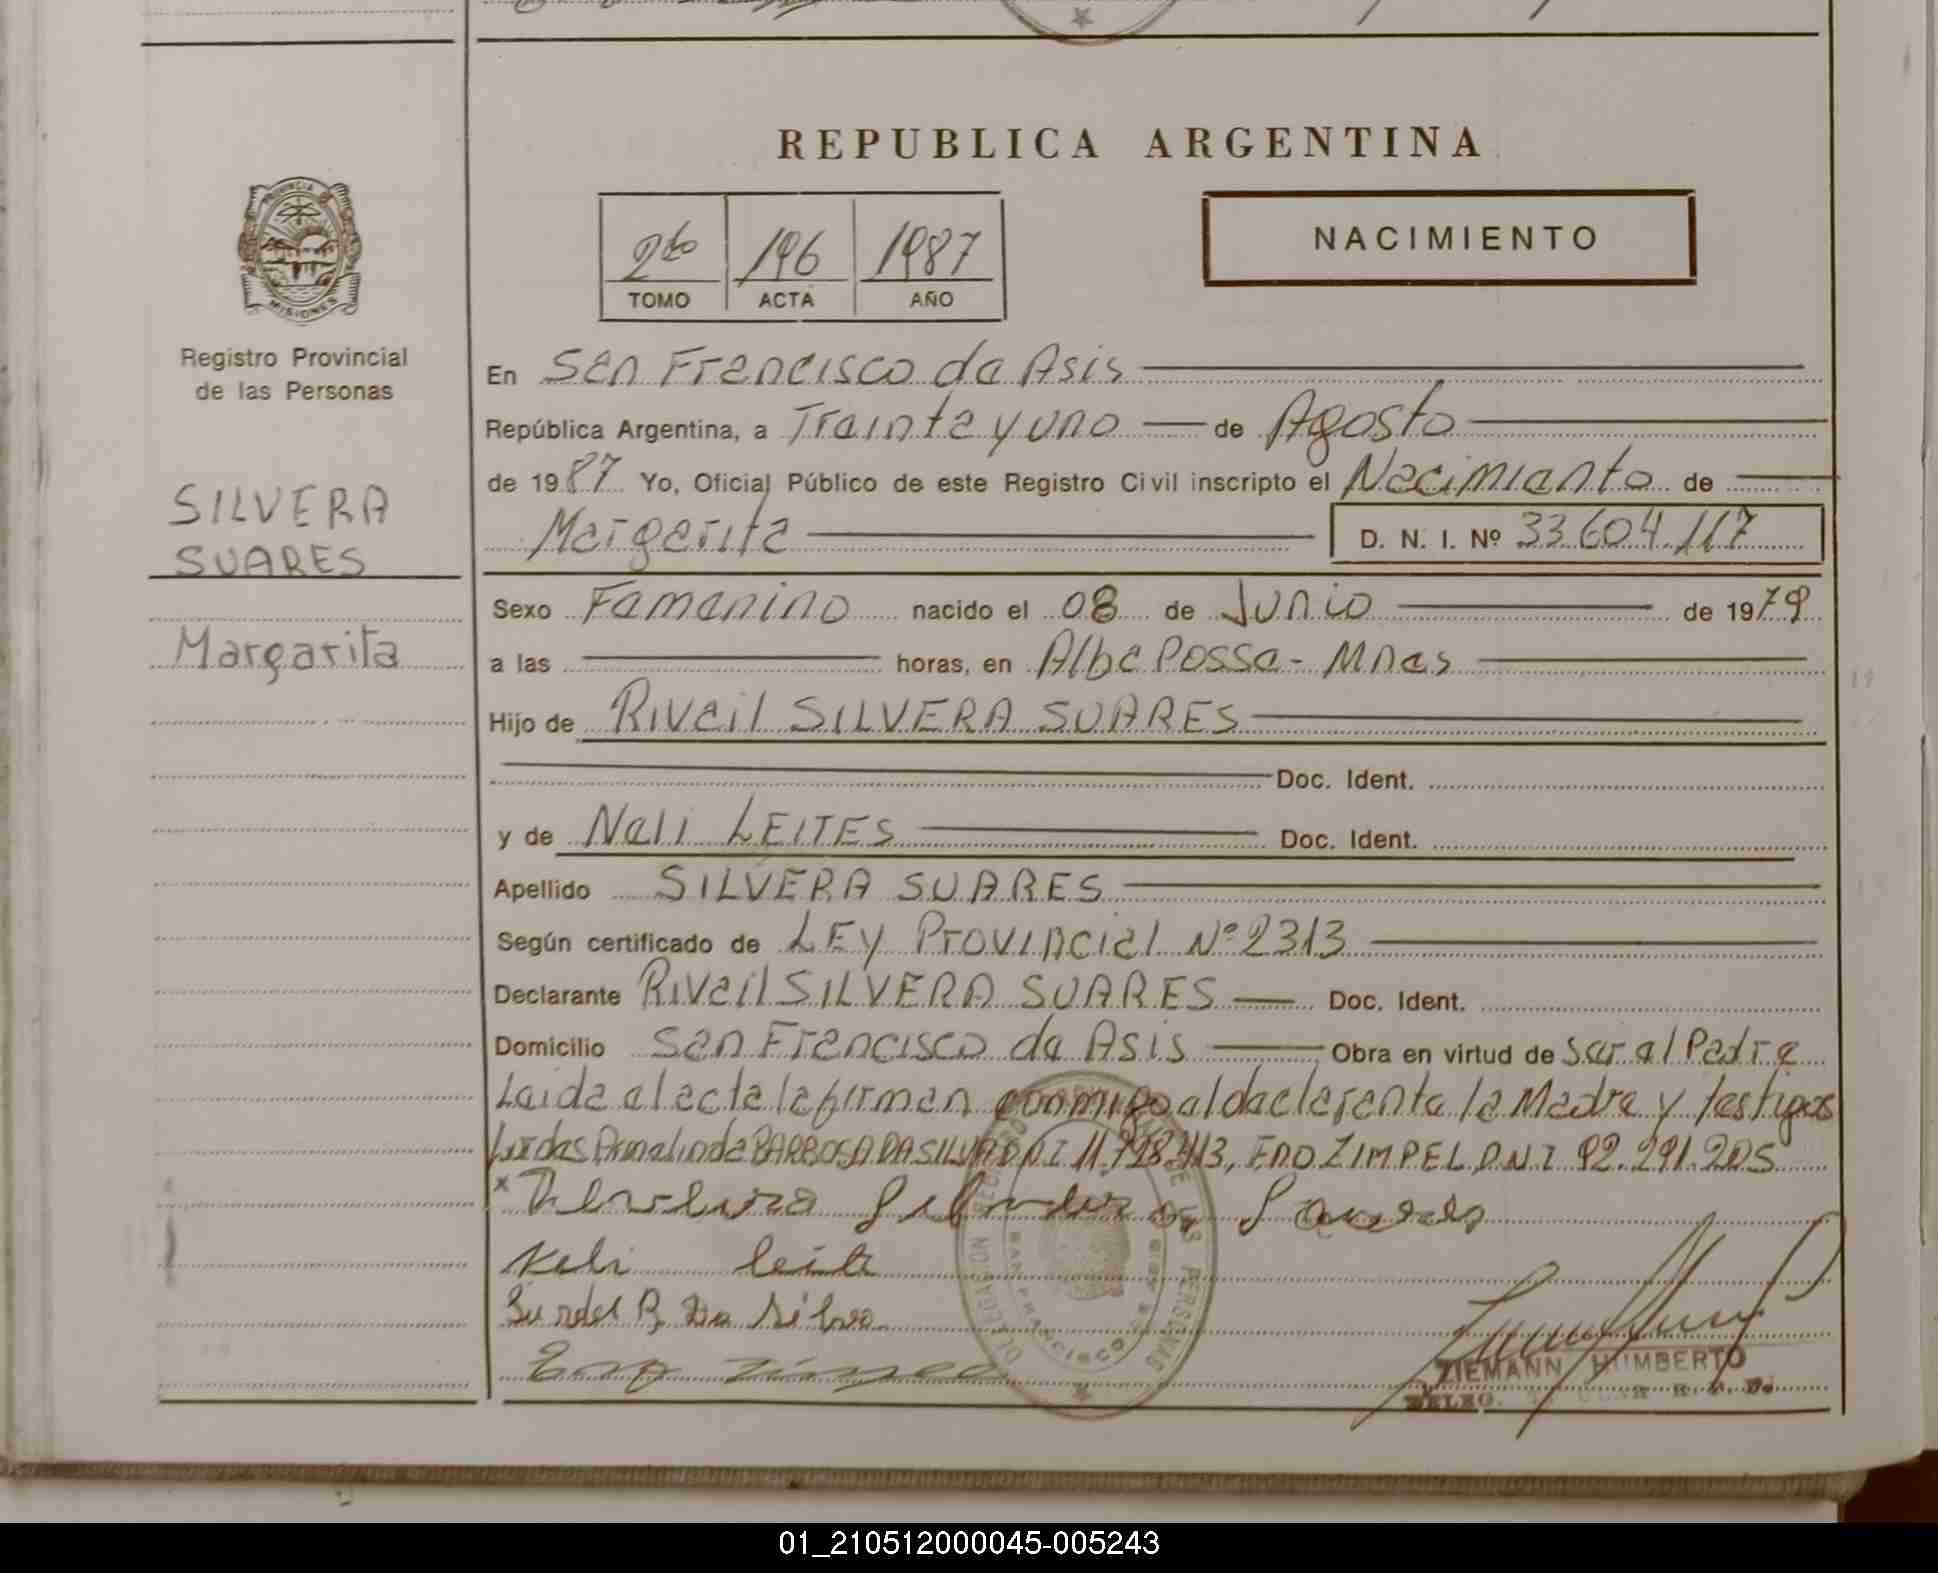 REPUBLICA ARGENTINA
2do 196 1987
TOMO ACTA AÑO
NACIMIENTO
PROVINCIA DE MISIONES
Registro Provincial
de las Personas
SILVERA
SUARES
Margarita
En San Francisco de Asis
República Argentina, a Treinta y uno de Agosto
de 1987 Yo, Oficial Público de este Registro Civil inscripto el Nacimiento de
Margarita D. N. I. Nº 33.604.117
Sexo Femenino nacido el 08 de Junio de 1979
a las horas, en Alba Posse - Mnes
Hijo de Riveil SILVERA SUARES
Doc. Ident.
y de Neli LEITES Doc. Ident.
Apellido SILVERA SUARES
Según certificado de LEY Provincial Nº 2313
Declarante Riveil SILVERA SUARES Doc. Ident.
Domicilio San Francisco de Asis Obra en virtud de Ser el Padre
Leida el acta la firman conmigo el declarante la Madre y testigos
BARBOSA DA SILVA DNI ENO ZIMPEL DNI 92.291.205
Neli leite
Da Silva
ZIEMANN HUMBERTO
DELEG.
01_210512000045-005243